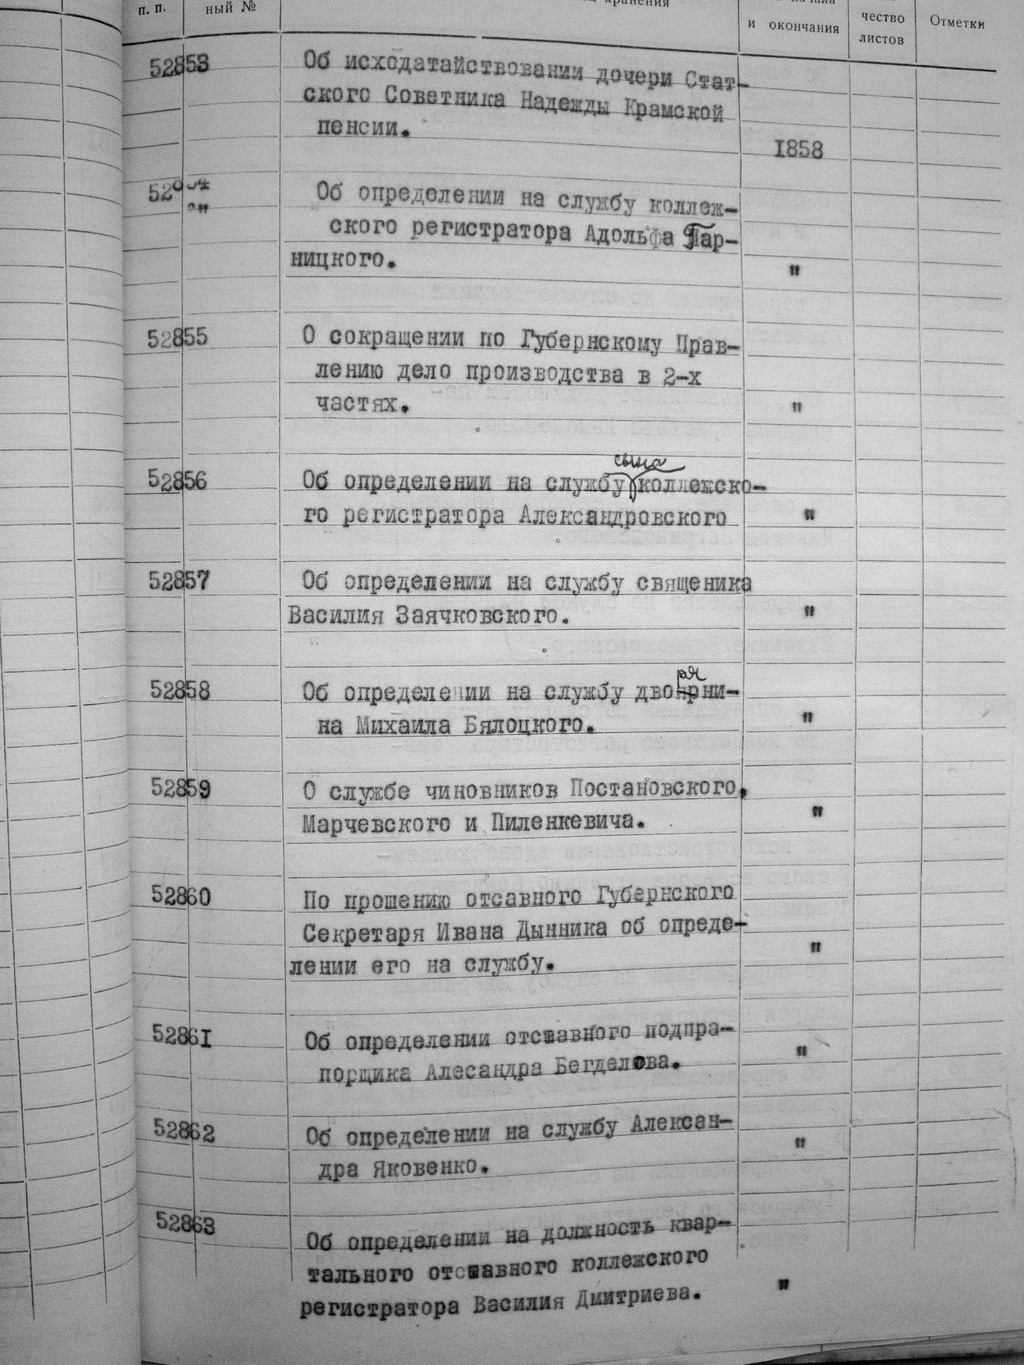 п. п.
ный №
хранения
и окончания
чество
листов
Отметки
52853
Об исходатайствовании дочери Стат-
ского Советника Надежды Крамской
пенсии.
1858
Об определении на службу коллеж-
ского регистратора Адольфа Парницкого.
"
52855
О сокращении по Губернскому Прав-
лению дело производства в 2-х
частях.
"
52856
сына
Об определении на службу коллежско-
го регистратора Александровского
"
52857
Об определении на службу священика
Василия Заячковского.
"
52858
Об определении на службу дворяни-
на Михаила Бялоцкого.
"
52859
О службе чиновников Постановского,
Марчевского и Пиленкевича.
"
52860
По прошению отсавного Губернского
Секретаря Ивана Дынника об опреде-
лении его на службу.
"
52861
Об определении отставного подпра-
порщика Алесандра Бегделова.
"
52862
Об определении на службу Алексан-
дра Яковенко.
"
52863
Об определении на должность квар-
тального отставного коллежского
регистратора Василия Дмитриева.
"